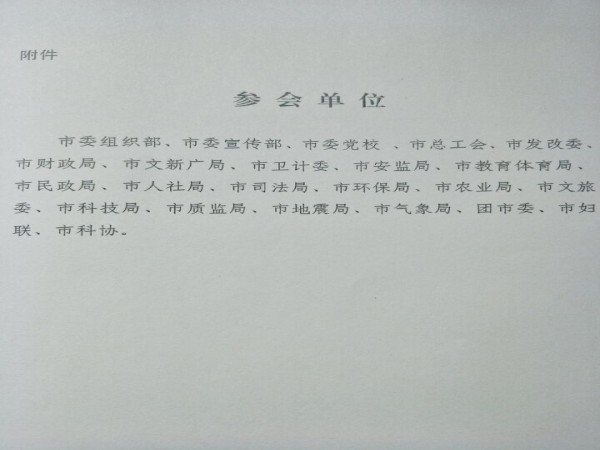 附件
参会单位
市委组织部、市委宣传部、市委党校 、市总工会、市发改委、
市财政局、市文新广局、市卫计委、市安监局、市教育体育局、
市民政局、市人社局、市司法局、市环保局、市农业局、市文旅
委、市科技局、市质监局、市地震局、市气象局、团市委、市妇
联、市科协。